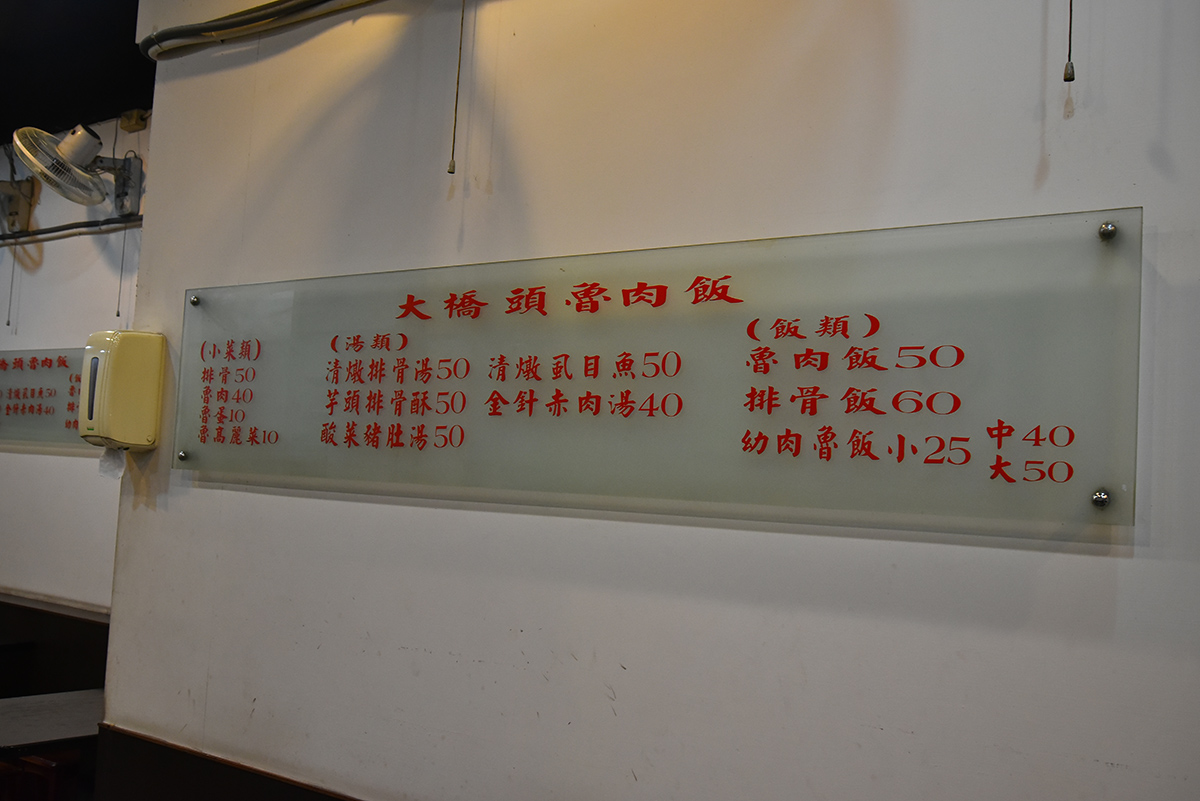 大橋頭魯肉飯
(小菜類)
排骨50
魯肉40
魯蛋10
魯高麗菜10
(湯類)
清燉排骨湯50
芋頭排骨酥50
酸菜豬肚湯50
清燉虱目魚50
金針赤肉湯40
(飯類)
魯肉飯50
排骨飯60
幼肉魯飯小25
中40
大50
橋頭魯肉飯
清燉虱目魚50
金針赤肉湯40